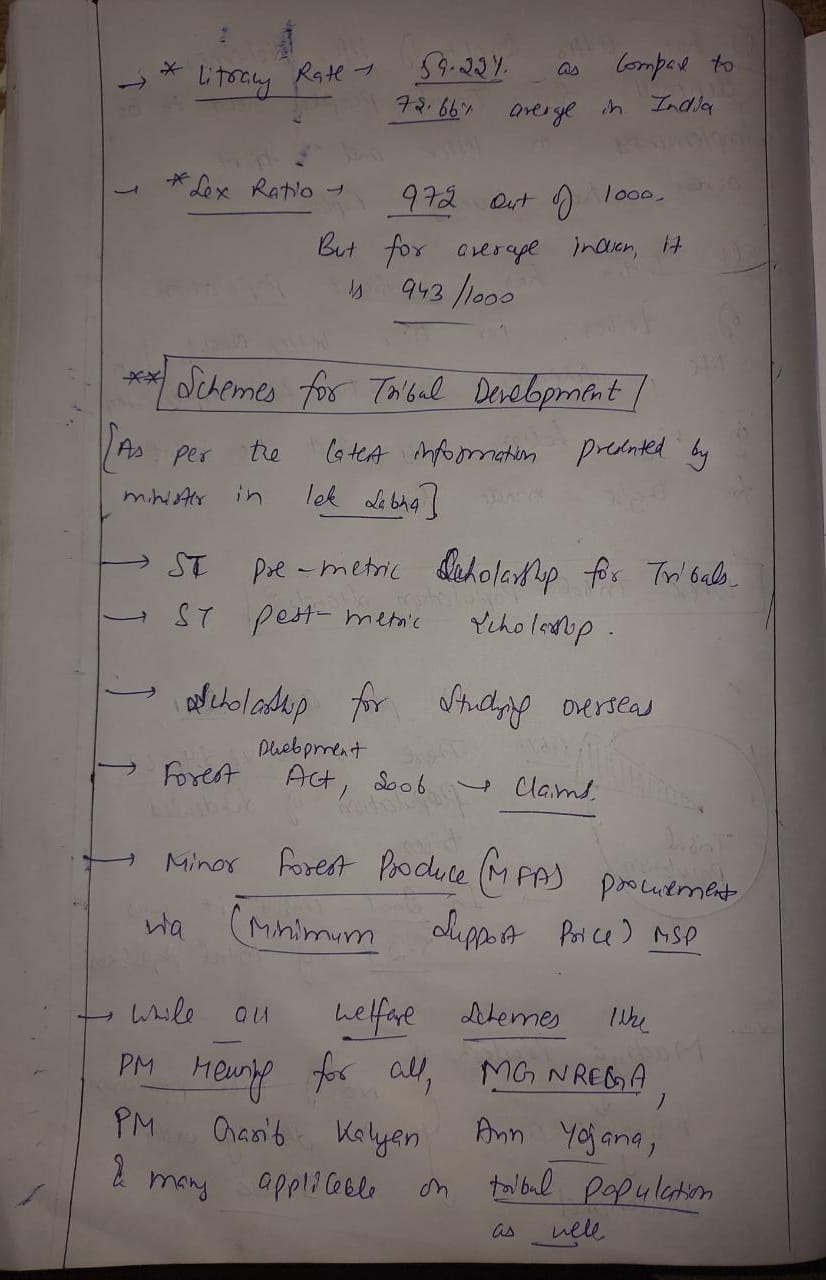 → * Litracy Rate → 59.22%. as Compare to
72.66% averge in India
→ * Sex Ratio → 972 Out of 1000.
But for average indian, it
is 943/1000
** Schemes for Tribal Development
[As per the latest information presented by
minister in lok Sabha]
→ ST pre-metric Scholarship for Tribals.
→ ST post-metric Scholarship.
→ Scholarship for Studying overseas
Development
→ Forest Act, 2006 → Claims.
→ Minor Forest Produce (MFP) procurement
via (Minimum Support Price) MSP
→ While all welfare Schemes like
PM Housing for all, MGNREGA,
PM Garib Kalyan Ann Yojana,
& many applicable on tribal population
as well